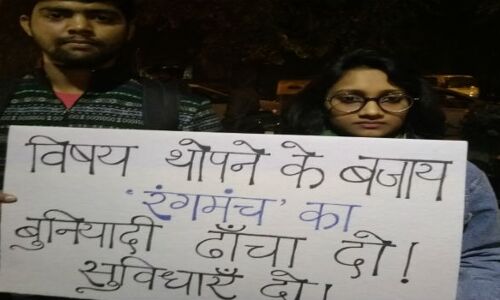 विषय थोपने के बजाय
'रंगमंच' का
बुनियादी ढाँचा दो!
सुविधाएँ दो!